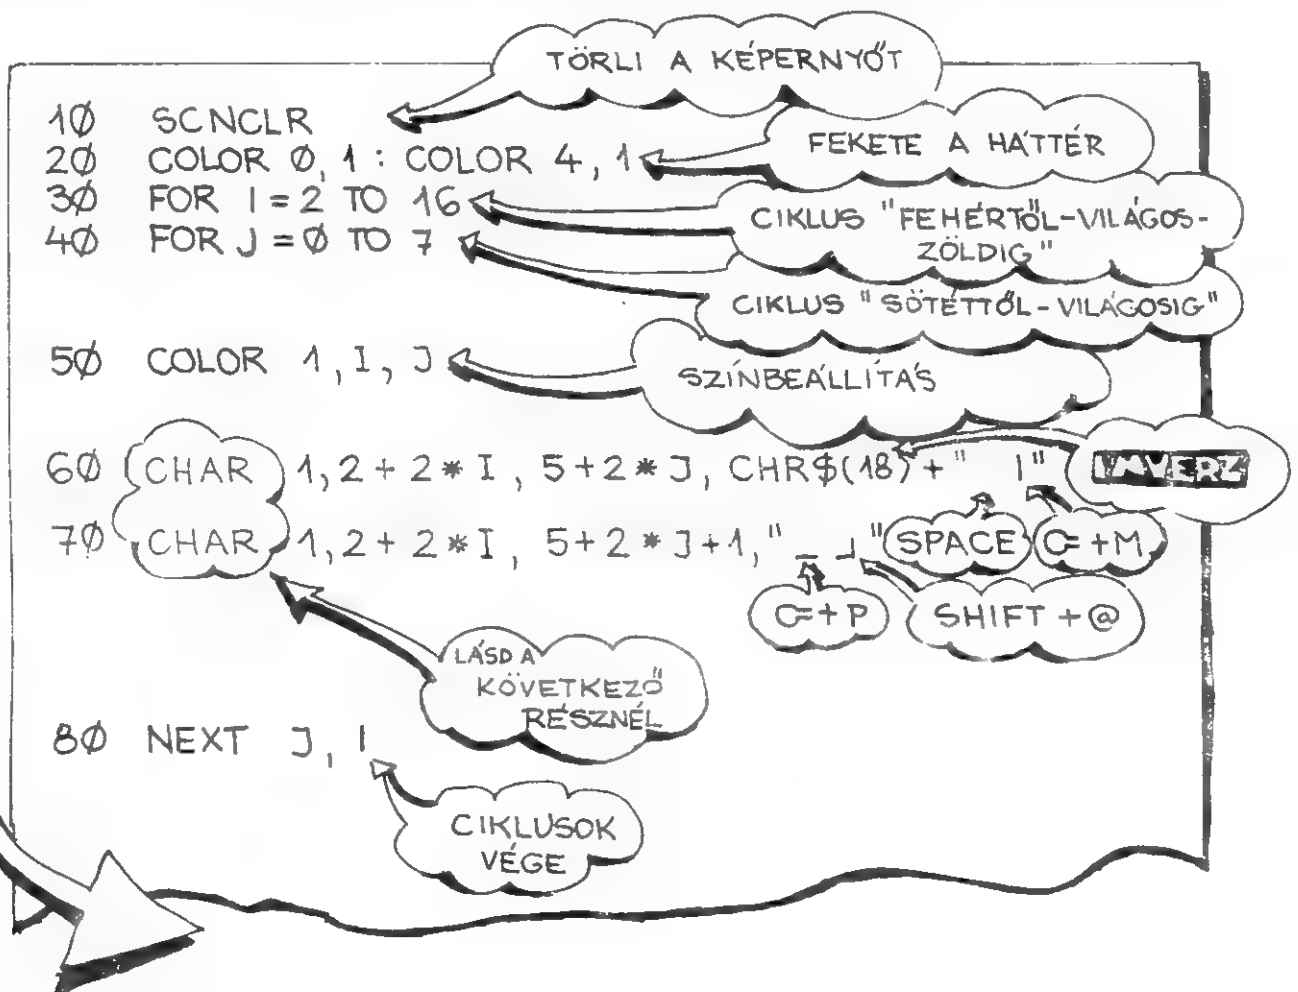 TÖRLI A KÉPERNYŐT
10 SCNCLR
20 COLOR 0,1 : COLOR 4,1
FEKETE A HÁTTÉR
30 FOR I = 2 TO 16
CIKLUS "FEHÉRTŐL-VILÁGOS-
ZÖLDIG"
40 FOR J = 0 TO 7
CIKLUS "SÖTÉTTŐL-VILÁGOSIG"
50 COLOR 1, I, J
SZÍNBEÁLLÍTÁS
60 CHAR 1, 2 + 2 * I, 5 + 2 * J, CHR$(18) + "  |"
INVERZ
70 CHAR 1, 2 + 2 * I, 5 + 2 * J + 1, "_ ┘"
SPACE
C= + M
C= + P
SHIFT + @
LÁSD A
KÖVETKEZŐ
RÉSZNÉL
80 NEXT J, I
CIKLUSOK
VÉGE